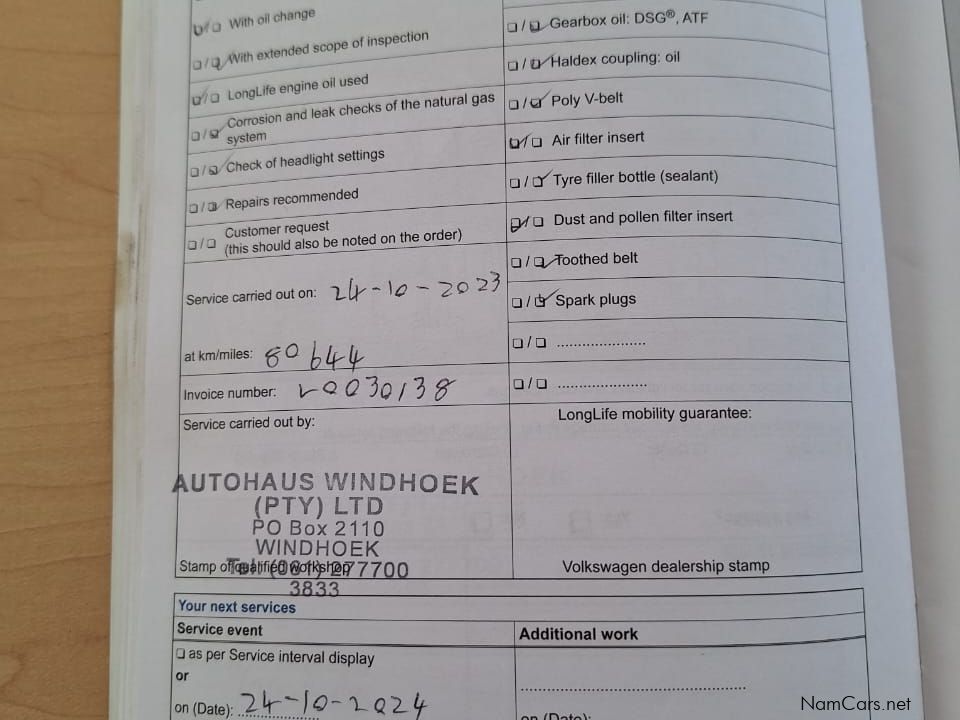 With oil change
With extended scope of inspection
LongLife engine oil used
Corrosion and leak checks of the natural gas
system
Check of headlight settings
Repairs recommended
Customer request
(this should also be noted on the order)
Service carried out on: 24-10-2023
at km/miles: 80644
Invoice number: 20030138
Service carried out by:
AUTOHAUS WINDHOEK
(PTY) LTD
PO Box 2110
WINDHOEK
Tel: (061) 277700
Stamp of qualified workshop
3833
Gearbox oil: DSG®, ATF
Haldex coupling: oil
Poly V-belt
Air filter insert
Tyre filler bottle (sealant)
Dust and pollen filter insert
Toothed belt
Spark plugs
LongLife mobility guarantee:
Volkswagen dealership stamp
Your next services
Service event
as per Service interval display
or
on (Date): 24-10-2024
Additional work
on (Date):
NamCars.net